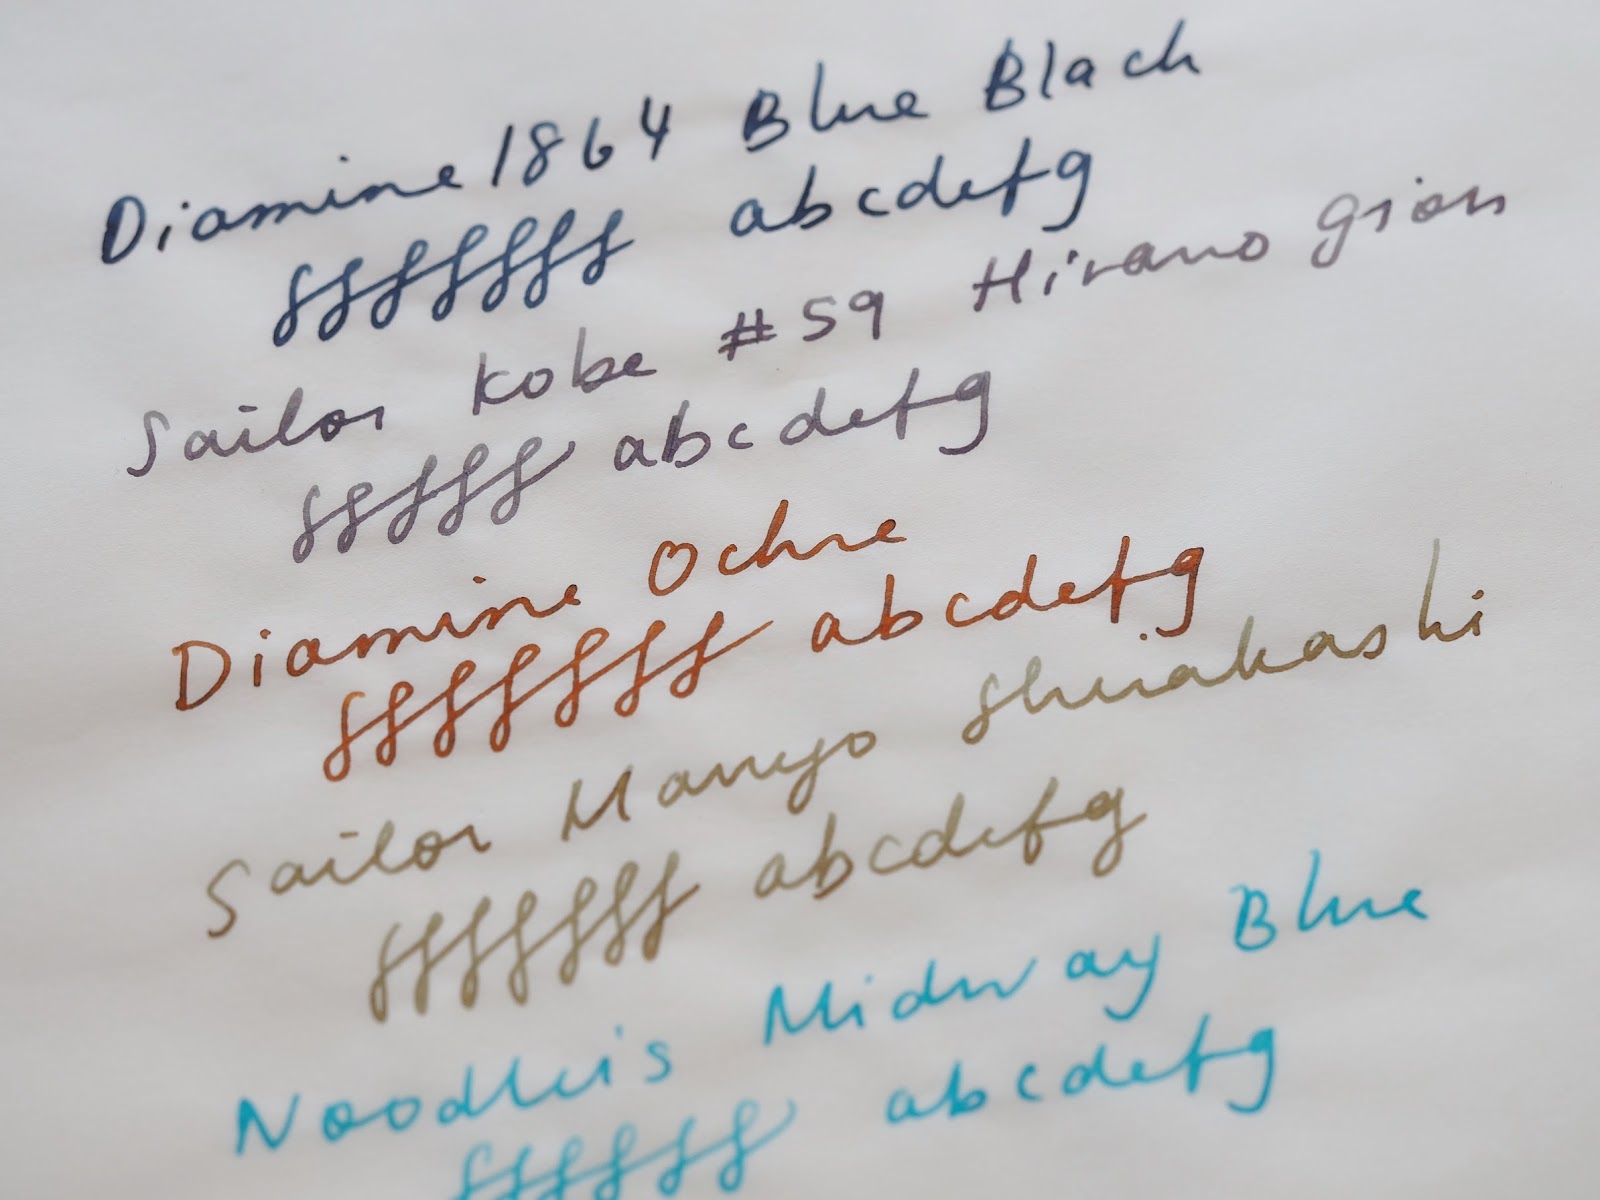 Diamine 1864 Blue Black
fffffff abcdefg
Sailor Kobe #59 Hirano Gion
fffff abcdefg
Diamine Ochre
fffffff abcdefg
Sailor Manyo Shirakashi
fffffff abcdefg
Noodler's Midway Blue
ffffff abcdefg